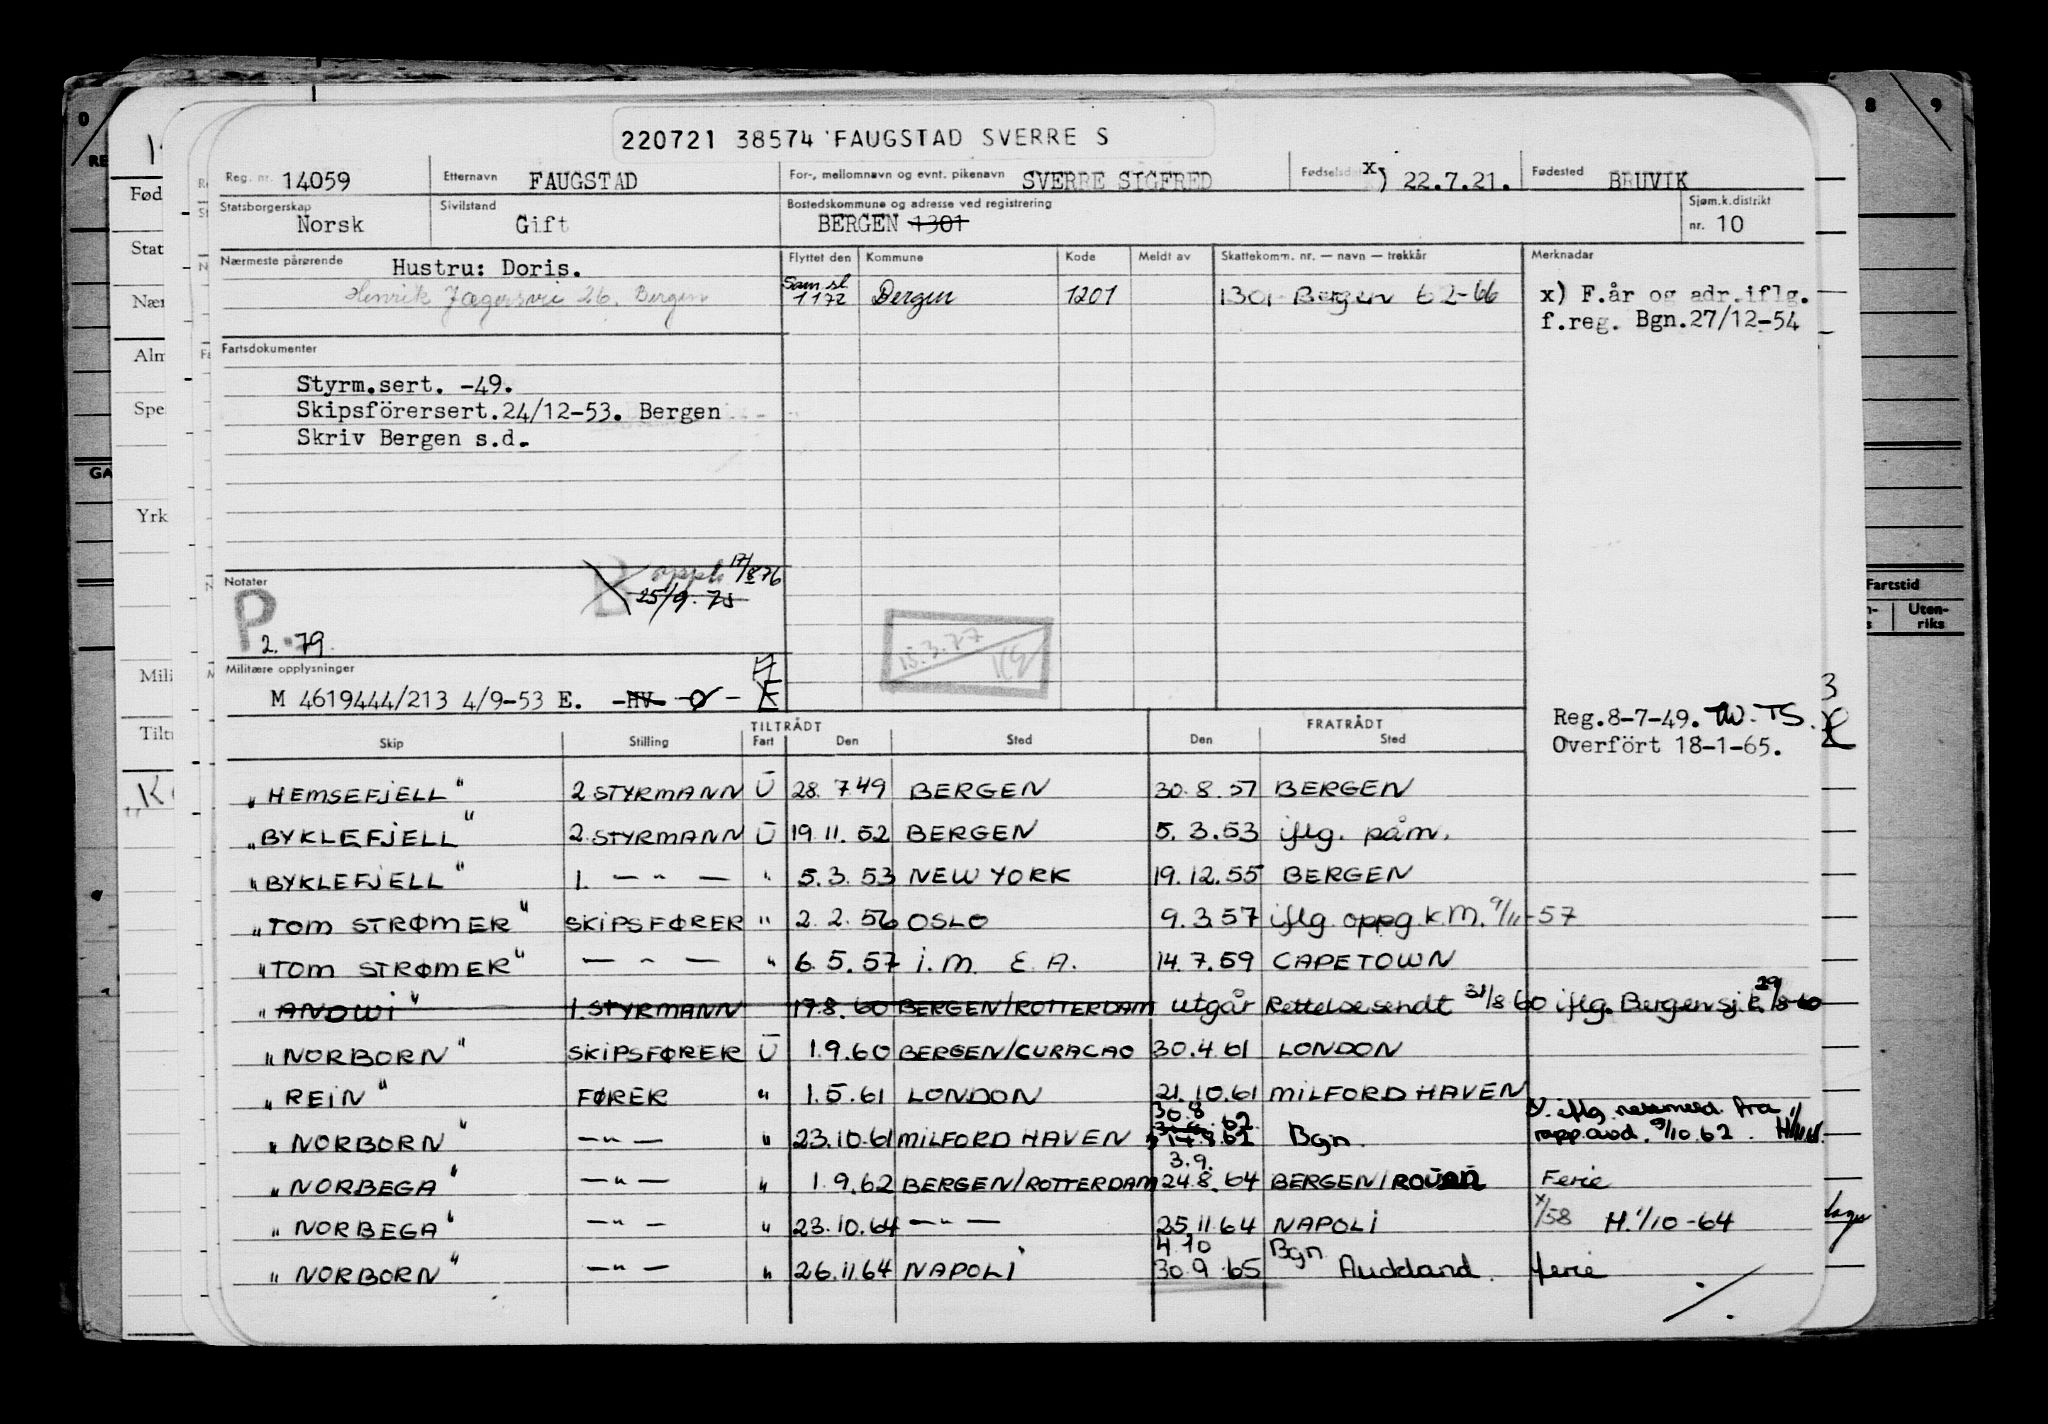 220721 38574 FAUGSTAD SVERRE S
Reg. nr. 14059 Etternavn FAUGSTAD For-, mellomnavn og evnt. pikenavn SVERRE SIGFRED x) 22.7.21. Fødested BRUVIK
Statsborgerskap Norsk Sivilstand Gift Bostedskommune og adresse ved registrering BERGEN 1301 Sjøm.k.distrikt nr. 10
Nærmeste pårørende Hustru: Doris. Flyttet den Kommune Kode Meldt av Skattekomm. nr. — navn — trekkår Merknadar
Henrik Jægersvei 26. Bergen Sam.sl. 1172 Bergen 1201 1301 Bergen 62-66 x) F.år og adr.iflg.
f.reg. Bgn.27/12-54
Fartsdokumenter
Styrm.sert. -49.
Skipsförersert.24/12-53. Bergen
Skriv Bergen s.d.
Notater 17/8 76
25/9.75
P
2.79
15.3.77
Militære opplysninger
M 4619444/213 4/9-53 E. -HV-
Reg.8-7-49. TS.
Overfört 18-1-65.
TILTRÅDT FRATRÅDT
Skip Stilling Fart Den Sted Den Sted
"HEMSEFJELL" 2 STYRMANN U 28. 7 49 BERGEN 30. 8. 57 BERGEN
"BYKLEFJELL" 2. STYRMANN U 19. 11. 52 BERGEN 5. 3. 53 iflg. påm.
"BYKLEFJELL" 1. — " — " 5. 3. 53 NEW YORK 19. 12. 55 BERGEN
"TOM STRØMER" SKIPSFØRER " 2. 2. 56 OSLO 9. 3. 57 iflg. oppg. k.M. 9/11-57
"TOM STRØMER" — " — " 6. 5. 57 i. m. E. A. 14. 7. 59 CAPETOWN
"ANDWI" 1. STYRMANN 17.8. 60 BERGEN/ROTTERDAM utgår Rettelse sendt 31/8 60 iflg. Bergen sj.k. 29/8-60
"NORBORN" SKIPSFØRER U 1. 9. 60 BERGEN/CURACAO 30. 4. 61 LONDON
"REIN" FØRER " 1. 5. 61 LONDON 21. 10. 61 MILFORD HAVEN
"NORBORN" — " — " 23. 10. 61 MILFORD HAVEN 30.8 62 14.8.62 Bgn. iflg. fra 9/10.62.
"NORBEGA" — " — " 1. 9. 62 BERGEN/ROTTERDAM 3.9. 24.8. 64 BERGEN/ROUEN Ferie
"NORBEGA" — " — " 23. 10. 64 — " — 25. 11. 64 NAPOLI x/58 H. 1/10-64
"NORBORN" — " — " 26. 11. 64 NAPOLI 4.10 30. 9. 65 Bgn Auckland. ferie
Fartstid
Uten-
riks